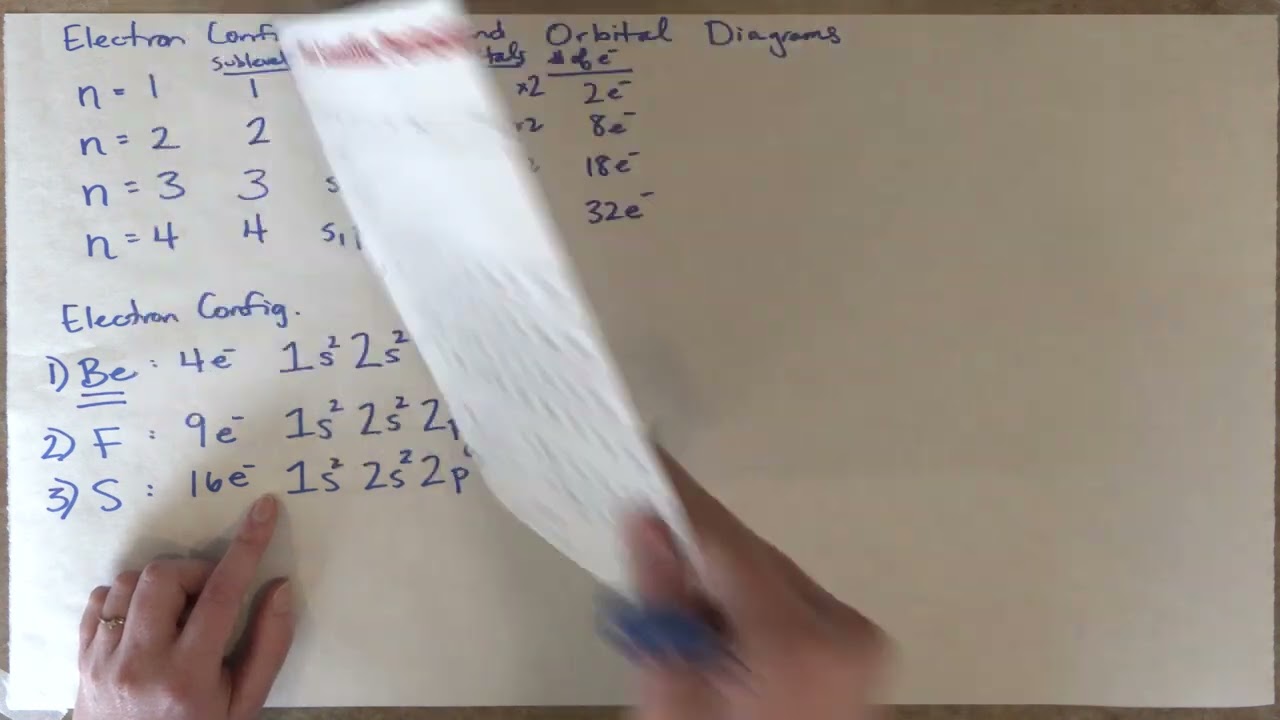 Electron Orbital Diagrams
sublevel # of e⁻
n = 1 1 ×2 2e⁻
n = 2 2 ×2 8e⁻
n = 3 3 s 18e⁻
n = 4 4 s, 32e⁻
Electron Config.
1) Be : 4e⁻ 1s² 2s²
2) F : 9e⁻ 1s² 2s² 2p
3) S : 16e⁻ 1s² 2s² 2p